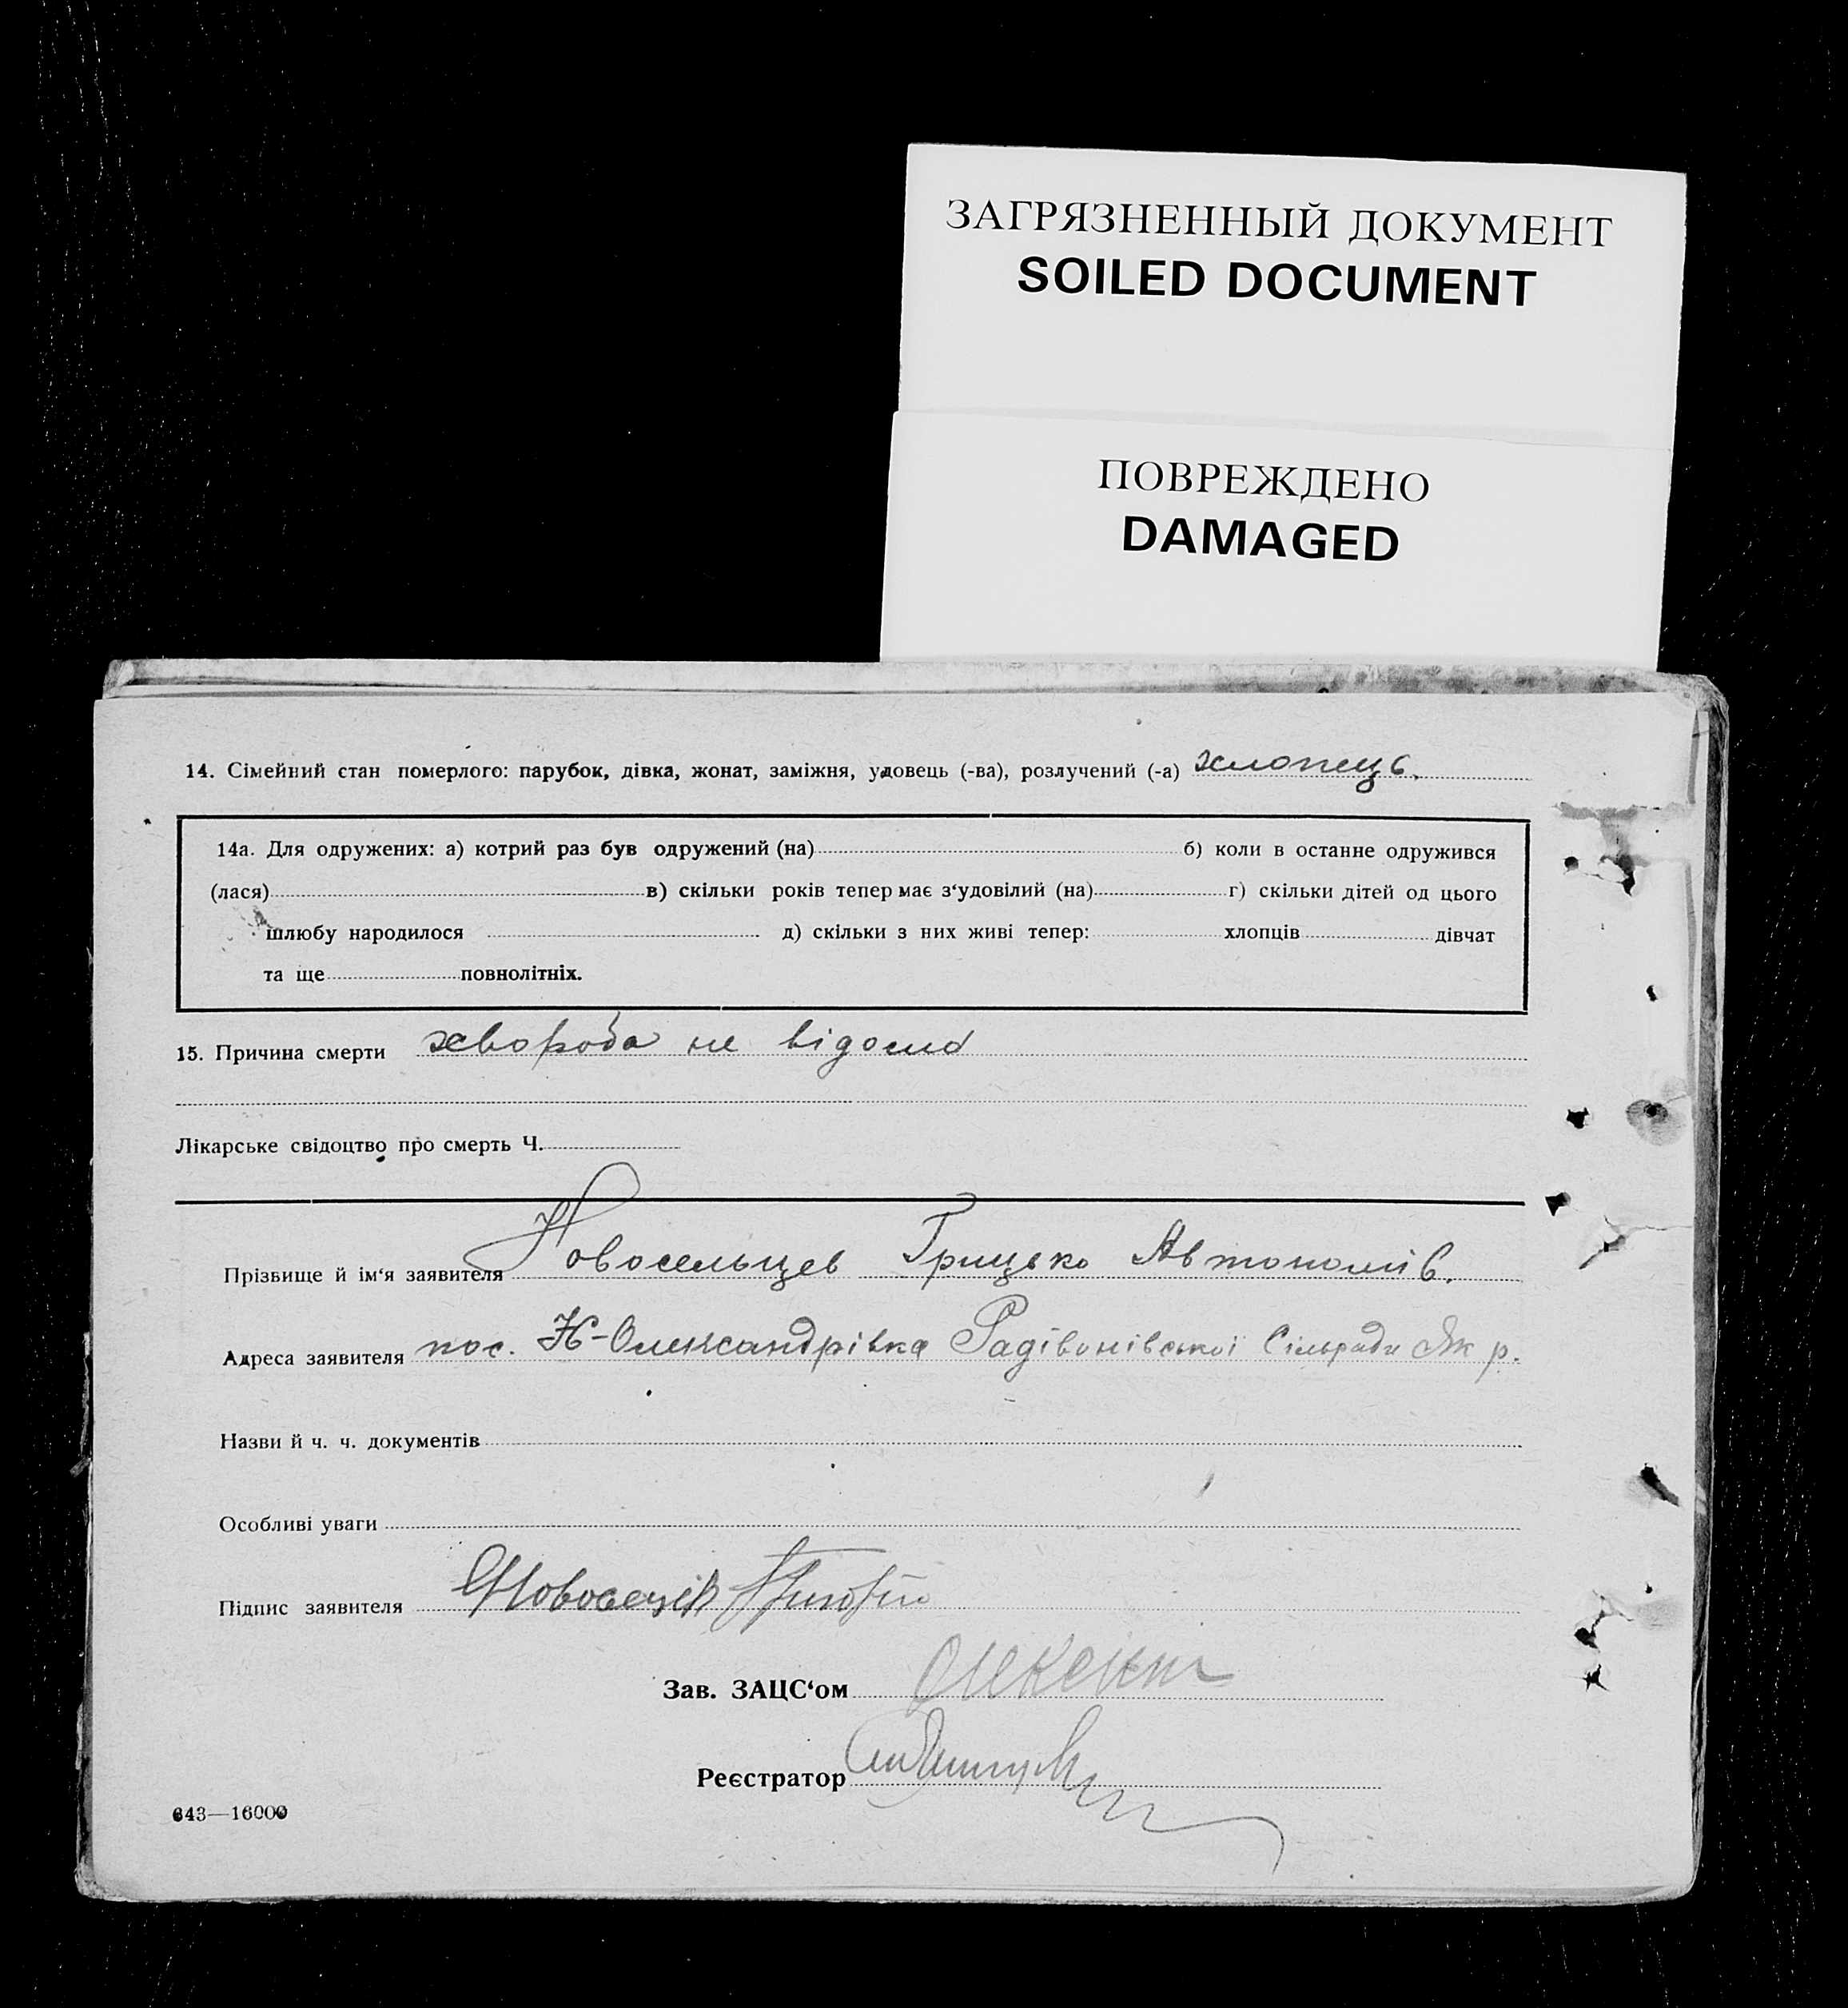 ЗАГРЯЗНЕННЫЙ ДОКУМЕНТ
SOILED DOCUMENT
ПОВРЕЖДЕНО
DAMAGED
14. Сімейний стан померлого: парубок, дівка, жонат, заміжня, удовець (-ва), розлучений (-а) хлопець.
14а. Для одружених: а) котрий раз був одружений (на) б) коли в останне одружився
(лася) в) скільки років тепер має з‘удовілий (на) г) скільки дітей од цього
шлюбу народилося д) скільки з них живі тепер: хлопців дівчат
та ще повнолітніх.
15. Причина смерти хвороба не відома
Лікарське свідоцтво про смерть Ч.
Прізвище й ім‘я заявителя Новосельцев Грицько Автономів.
Адреса заявителя пос. Н-Олександрівка Радівонівської Сільради Як р.
Назви й ч. ч. документів
Особливі уваги
Підпис заявителя
Зав. ЗАЦС‘ом
Реєстратор
643—16000